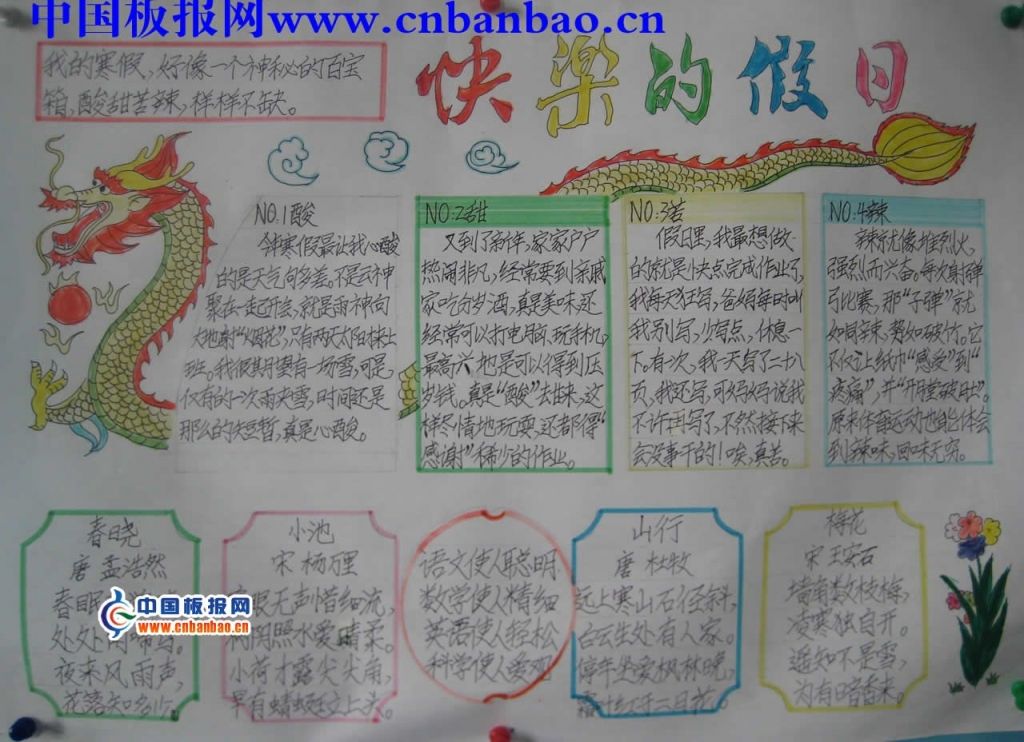 中国板报网www.cnbanbao.cn
我的寒假,好像一个神秘的百宝
箱,酸甜苦辣,样样不缺。
快乐的假日
NO.1酸
寒假最让我心酸
的是天气何多差。不是云神
聚在一起开会,就是雨神向
大地射“烟花”,只有两天太阳
班。我很期望有一场雪,可是,
仅有的一次雨夹雪,时间还是
那么的短暂,真是心酸。
NO:2甜
又到了新年,家家户户
热闹非凡,经常要到亲戚
家吃分岁酒,真是美味,还
经常可以打电脑,玩手机,
最高兴地是可以得到压
岁钱。真是“酸”去甜来,这
样尽情地玩耍,还都得“
感谢”稀少的作业。
NO:3苦
假日里,我最想做
的就是快点完成作业了,
我每天狂写,爸妈每时叫
我别写,少写点,休息一
下。有次,我一天写了二十八
页,我还写,可妈妈说我
不许再写了,不然接下来
会没事干的!唉,真苦。
NO:4辣
辣就像堆烈火,
强烈而兴奋。每次射弹
弓比赛,那“子弹”就
如同辣,势如破竹。它
不仅让纸巾“感受”到“
疼痛”,并“开膛破肚”。
原来体育运动也能体会
到辣味,回味无穷。
春晓
唐 孟浩然
春眠
处处闻啼鸟。
夜来风雨声,
花落知多少。
中国板报网
www.cnbanbao.cn
小池
宋 杨万里
泉眼无声惜细流,
树阴照水爱晴柔。
小荷才露尖尖角,
早有蜻蜓立上头。
语文使人聪明
数学使人精细
英语使人轻松
科学使人爱观
山行
唐 杜牧
远上寒山石径斜,
白云生处有人家。
停车坐爱枫林晚,
霜叶红于二月花。
梅花
宋 王安石
墙角数枝梅,
凌寒独自开。
遥知不是雪,
为有暗香来。